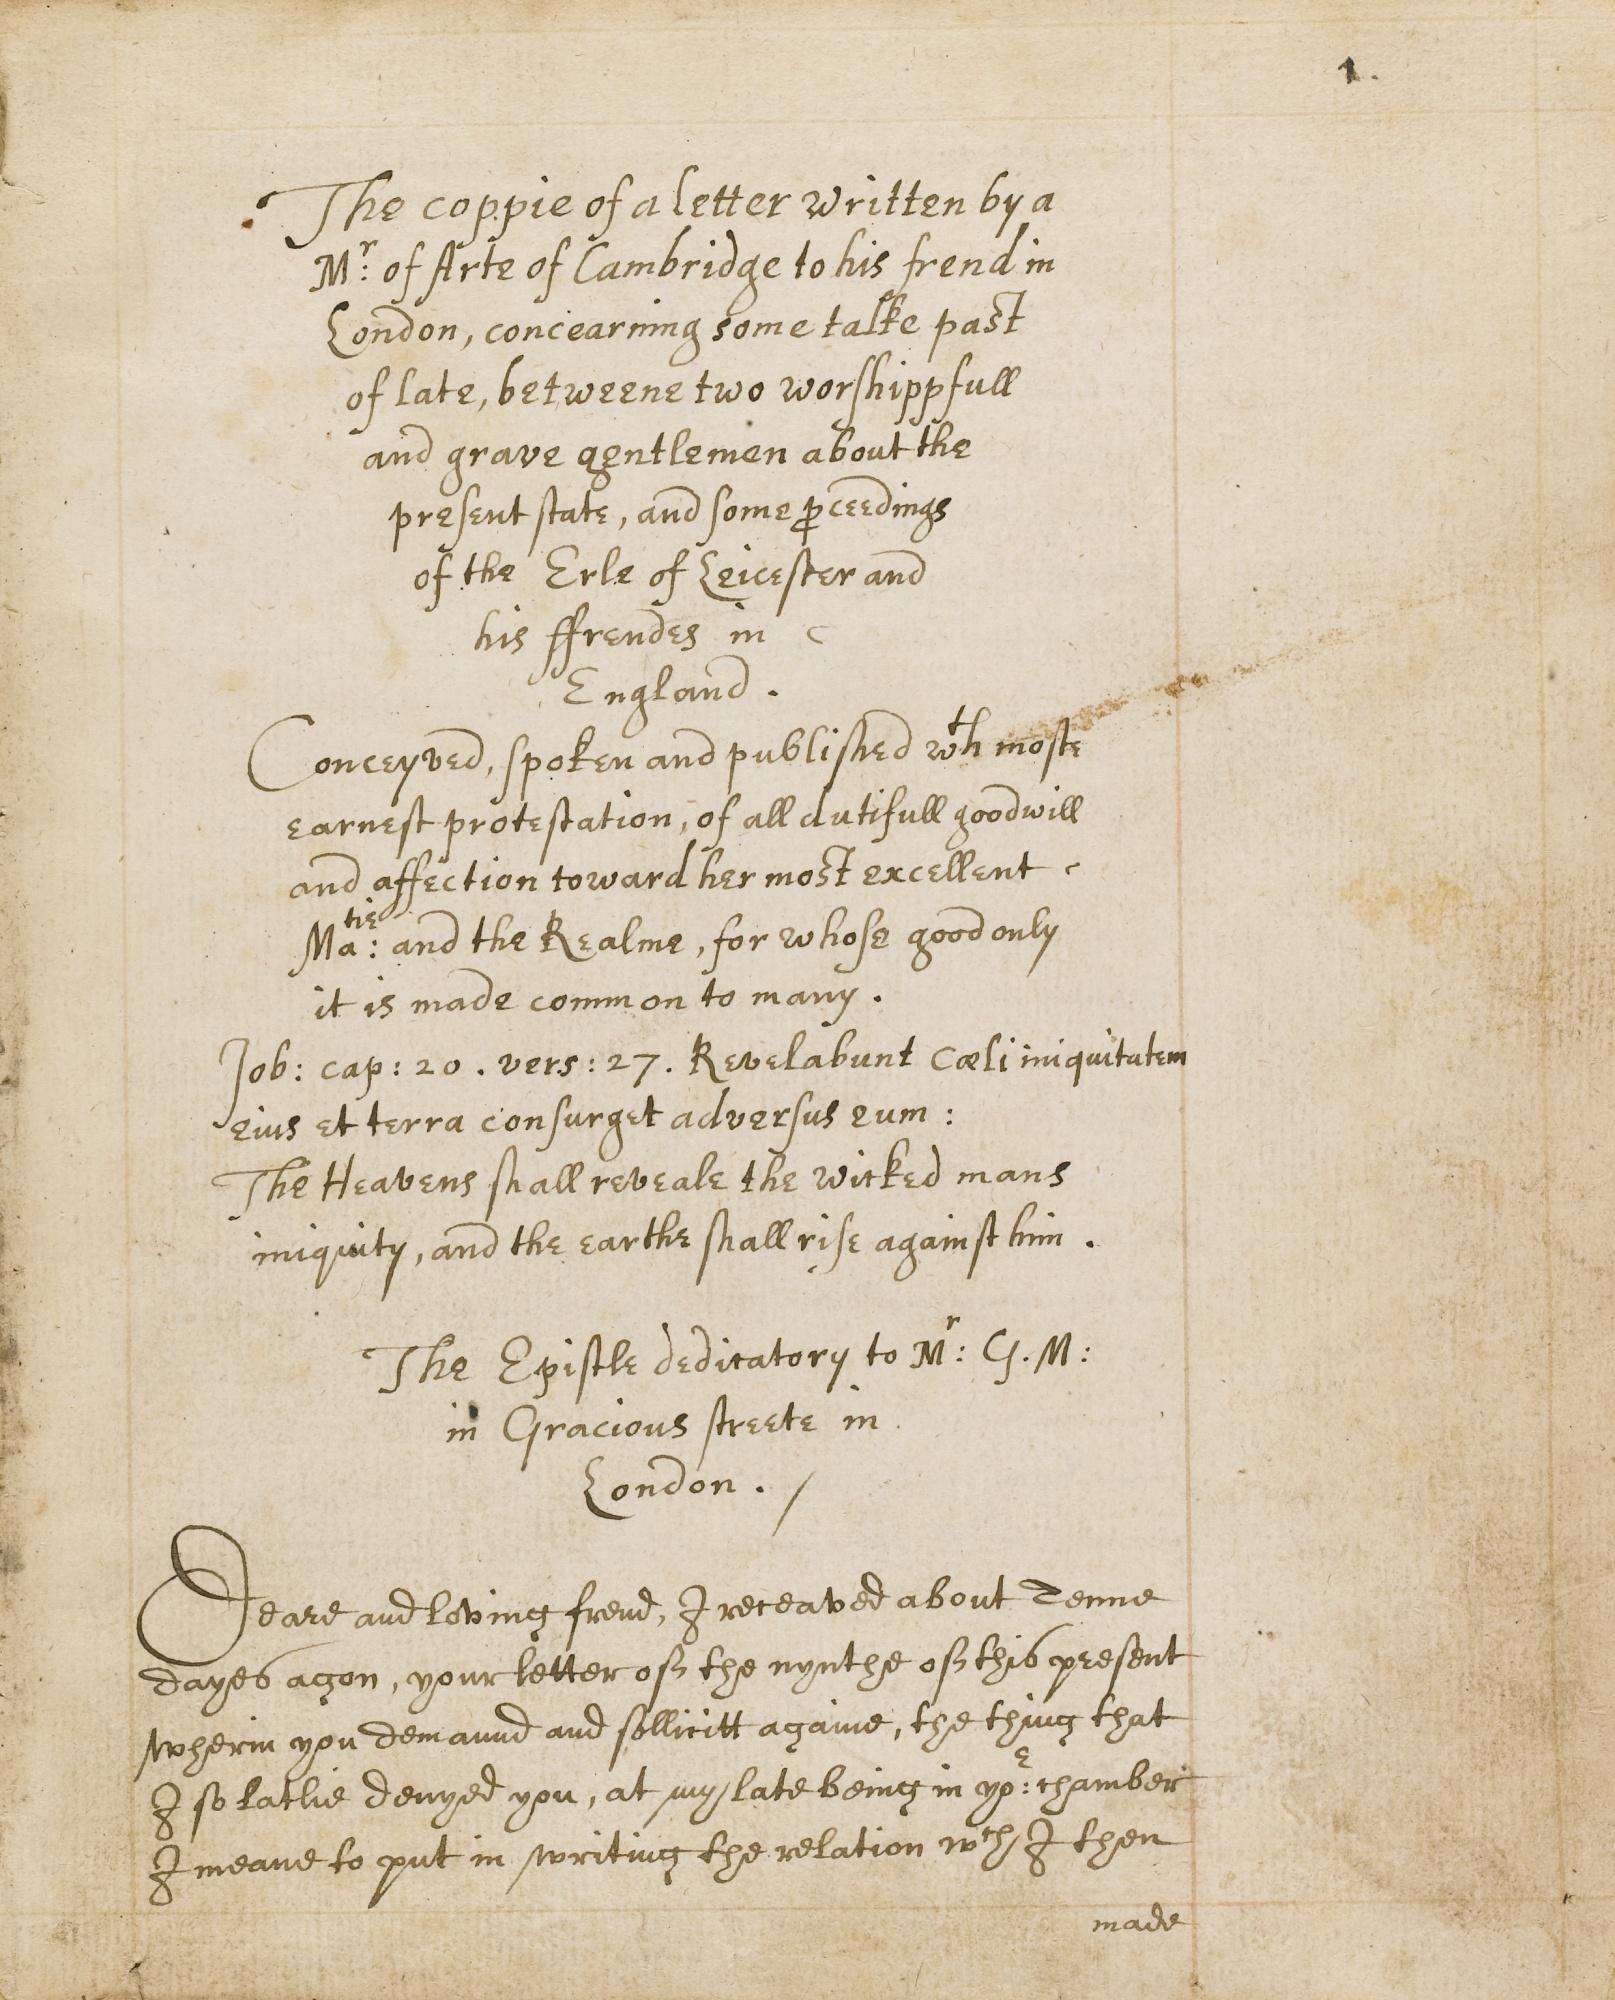 1.
The coppie of a letter written by a
Mr: of Arte of Cambridge to his frend in
London, concearning some talke past
of late, betweene two worshippfull
and grave gentlemen about the
present state, and some ꝓceedings
of the Erle of Leicester and
his ffrendes in
England.
Conceyved, spoken and published wth moste
earnest protestation, of all dutifull goodwill
and affection toward her most excellent
Matie: and the Realme, for whose good only
it is made common to many.
Job: cap: 20. vers: 27. Revelabunt Cæli iniquitatem
eius et terra consurget adversus eum:
The Heavens shall reveale the wicked mans
iniquity, and the earthe shall rise against him.
The Epistle dedicatory to Mr: G. M:
in Gracious streete in
London. /
Deare and loving frend, I receaved about Tenne
dayes agon, your letter of the nynthe of this present
wherin you demaund and sollicitt againe, the thing that
I so latlie denyed you, at my late being in yor: chamber
I meane to put in writing the relation wch I then
made